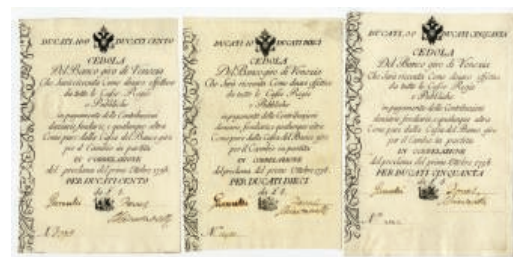 DUCATI 100 DUCATI CENTO
CEDOLA
Del Banco giro di Venezia
Che Sarà ricevuta Come danaro effettivo
da tutte le Casse Regie
e Pubbliche
in pagamento delle Contribuzioni
denaro, fondiarie, e qualunque altra
Come pure dalla Cassa del Banco giro
per il Cambio in partita
IN CORRELAZIONE
del proclama del primo Ottobre 1798
PER DUCATI CENTO
da £
DUCATI 10 DUCATI DIECI
CEDOLA
Del Banco giro di Venezia
Che Sarà ricevuta Come danaro effettivo
da tutte le Casse Regie
e Pubbliche
in pagamento delle Contribuzioni
denaro, fondiarie, e qualunque altra
Come pure dalla Cassa del Banco giro
per il Cambio in partita
IN CORRELAZIONE
del proclama del primo Ottobre 1798
PER DUCATI DIECI
da £
DUCATI 50 DUCATI CINQUANTA
CEDOLA
Del Banco giro di Venezia
Che Sarà ricevuta Come danaro effettivo
da tutte le Casse Regie
e Pubbliche
in pagamento delle Contribuzioni
denaro, fondiarie, e qualunque altra
Come pure dalla Cassa del Banco giro
per il Cambio in partita
IN CORRELAZIONE
del proclama del primo Ottobre 1798
PER DUCATI CINQUANTA
da £